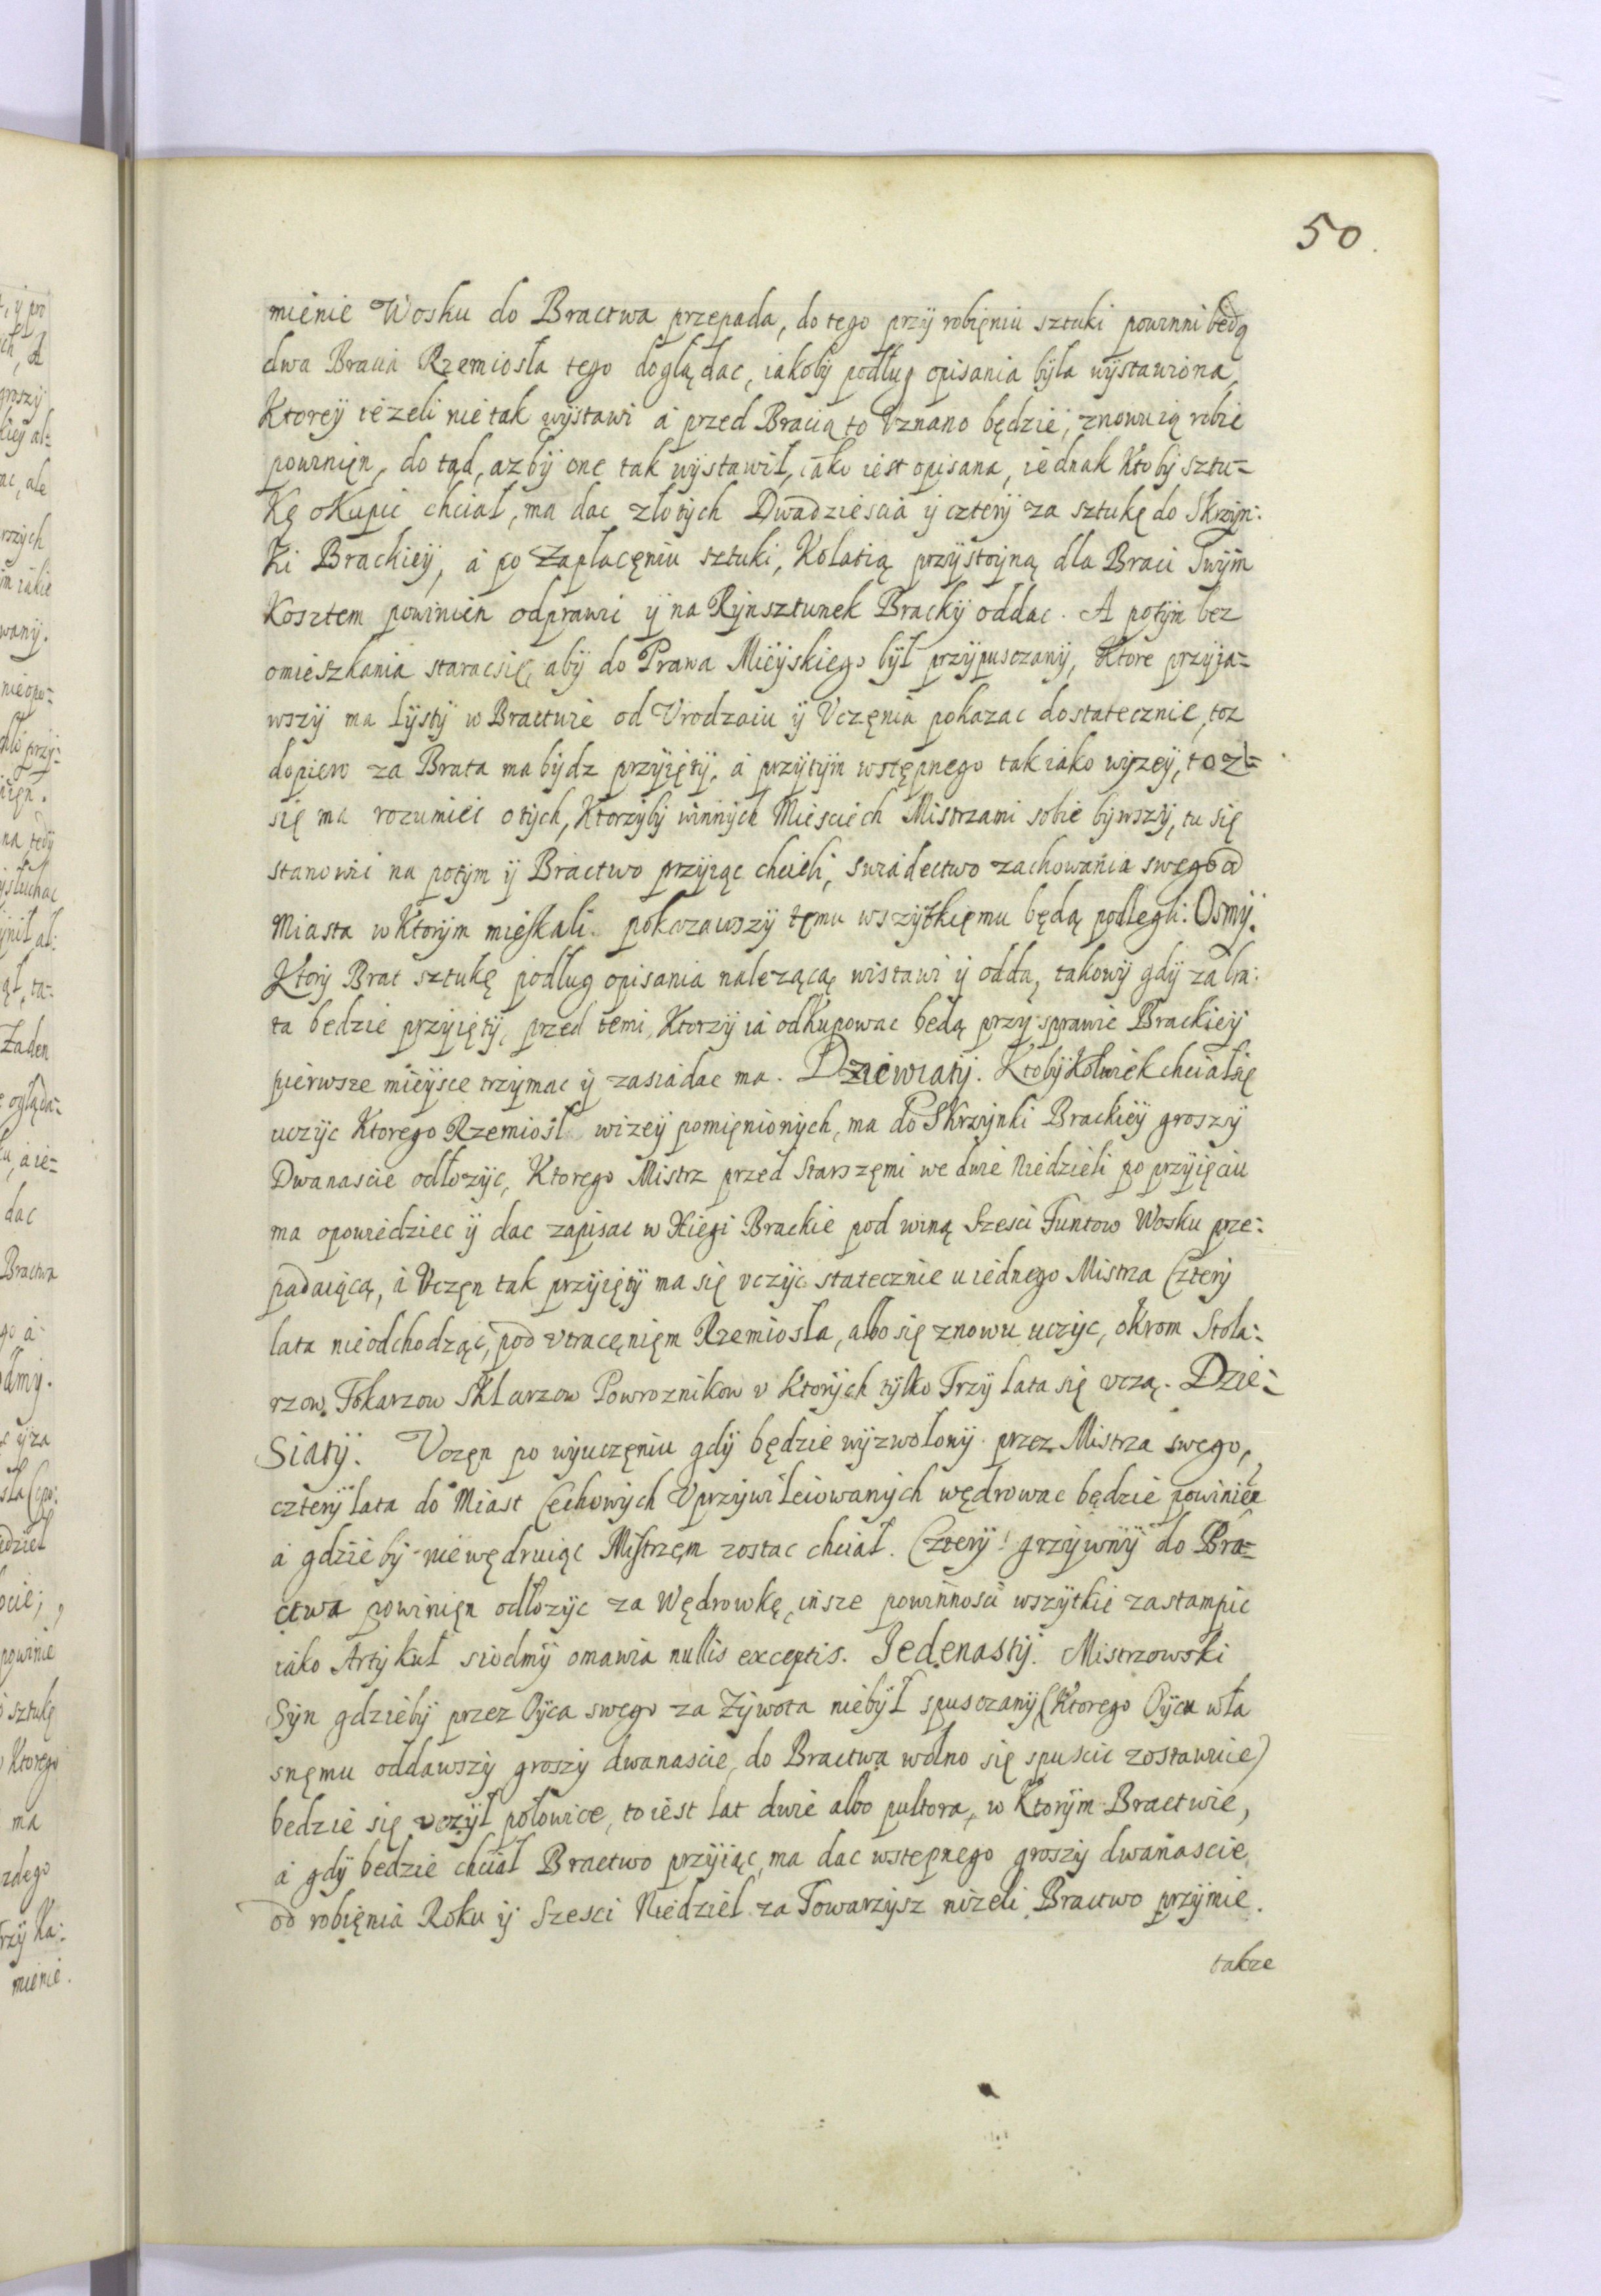 50.
mienie Wosku do Bractwa przepada, do tego przy robięniu sztuki powinni będą
dwa Bracia Rzemiosła tego doglądac, iakoby podług opisania była wystawiona,
Ktoreÿ ieżeli nie tak wystawi á przed Bracią to Vznano będzie, znowu ią robic
powinięn, do tąd, azby one tak wystawił, iako iest opisana, iednak Kto by sztu=
Kę oKupic chciał, ma dac złotych Dwadziescia ÿ cztery za sztukę do Skrzyn:
Ki Brackieÿ, á po zapłacęniu sztuki, Kolatią przystoyną dla Braci Swym
Kosztem powinien odprawic ÿ na Rynsztunek Bracky oddac. A potym bez
omieszkania staracsię, aby do Prawa Mieÿskiego był przypusczany, Ktore przyja=
wszy ma Lysty w Bractwie od Vrodzaiu ÿ Vczęnia pokazac dostatecznie, toz
dopiero za Brata ma bydz przyięty, á przytym wstępnego tak iako wyzey, toz=
się ma rozumiec o tych, Ktorzyby winnych Miesciech Mistrzami sobie bywszy, tu się
stanowic na potym ÿ Bractwo przyiąc chcieli, swiadectwo zachowania swego od
Miasta w Ktorym mieſkali pokazawszy tęmu wszytkięmu będą podlegli. Osmy.
Ktory Brat sztukę podług opisania nalezącą wistawi ÿ odda, takowy gdy za bra:
ta bedzie przyięty, przed temi, Ktorzy ią odkupowac bedą przy sprawie Brackieÿ
pierwsze mieysce trzymac ÿ zasiadac ma. Dziewiaty. KtobyKolwiek chciałsię
uczyc Ktorego Rzemiosł wizeÿ pomięnionych, ma do Skrzynki Brackieÿ groszy
Dwanascie odłozyc, Ktorego Mistrz przed Starszęmi we dwie Niedzieli po przyięciu
ma opowiedziec ÿ dac zapisac w Xiegi Brackie pod winą Szesci Funtow Wosku prze:
padaiącą, á Vczęn tak przyięty ma się vczyc statecznie u iednego Mistrza Cztery
lata nieodchodząc, pod vtracęnięm Rzemiosła, albo się znowu uczyc, oKrom Stola:
rzow, Tokarzow SKlarzow Powroznikow v Ktorych tylko Trzy lata się vczą. Dzie:
Siaty. Vczęn po wyuczęniu gdy będzie wyzwolony przez Mistrza swego,
cztery lata do Miast Cechowych Vprzywileiowanych wędrowac będzie powinięn
á gdzieby niewędruiąc Miſtrzęm zostac chciał. Cztery grzywny do Bra=
ctwa powinięn odłozyc za Wędrowkę, insze powinnosci wszytkie zastampic
iako Artykuł siodmy omawia nullis exceptis. Jedenasty. Mistrzowski
Syn gdzieby przez Oyca swego za Zywota niebył spusczany (Ktorego Oycu wła
snęmu oddawszy groszy dwanascie, do Bractwa wolno się spuscic zostawuie)
bedzie się vczył połowice, to iest lat dwie albo pułtora, w Ktorym Bractwie,
á gdy bedzie chciał Bractwo przyiąc, ma dac wstępnego groszy dwanascie
od robięnia Roku ÿ Szesci Niedziel za Towarzysz nizeli Bractwo przymie.
takze